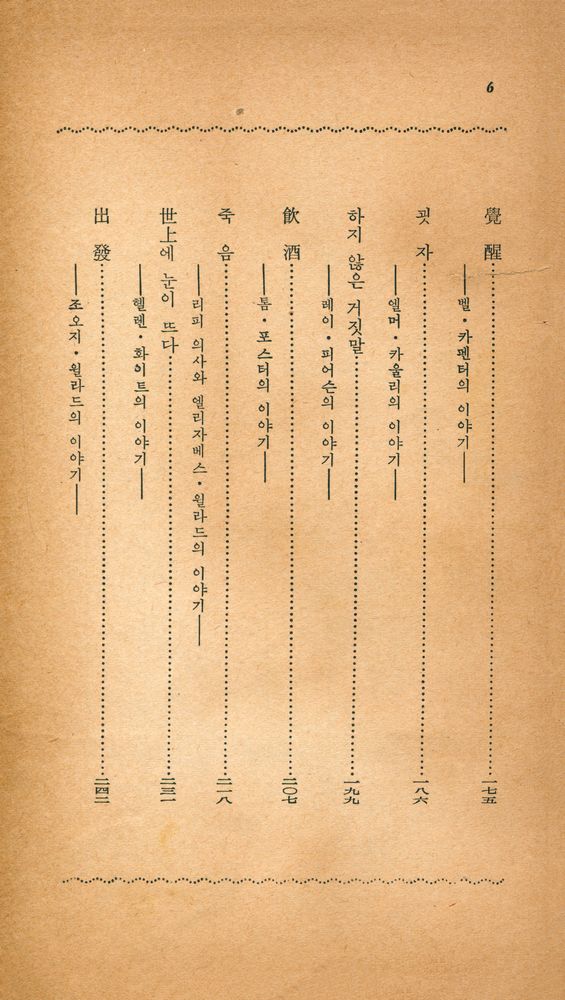 6
覺醒……一七五
——벨・카펜터의 이야기——
굇자……一八六
——엘머・카울리의 이야기——
하지 않은 거짓말……一九九
——레이・피어슨의 이야기——
飮酒……二〇七
——톰・포스터의 이야기——
죽음……二一八
——리피 의사와 엘리자베스・윌라드의 이야기——
世上에 눈이 뜨다……二三一
——헬렌・화이트의 이야기——
出發……二四二
——조오지・윌라드의 이야기——